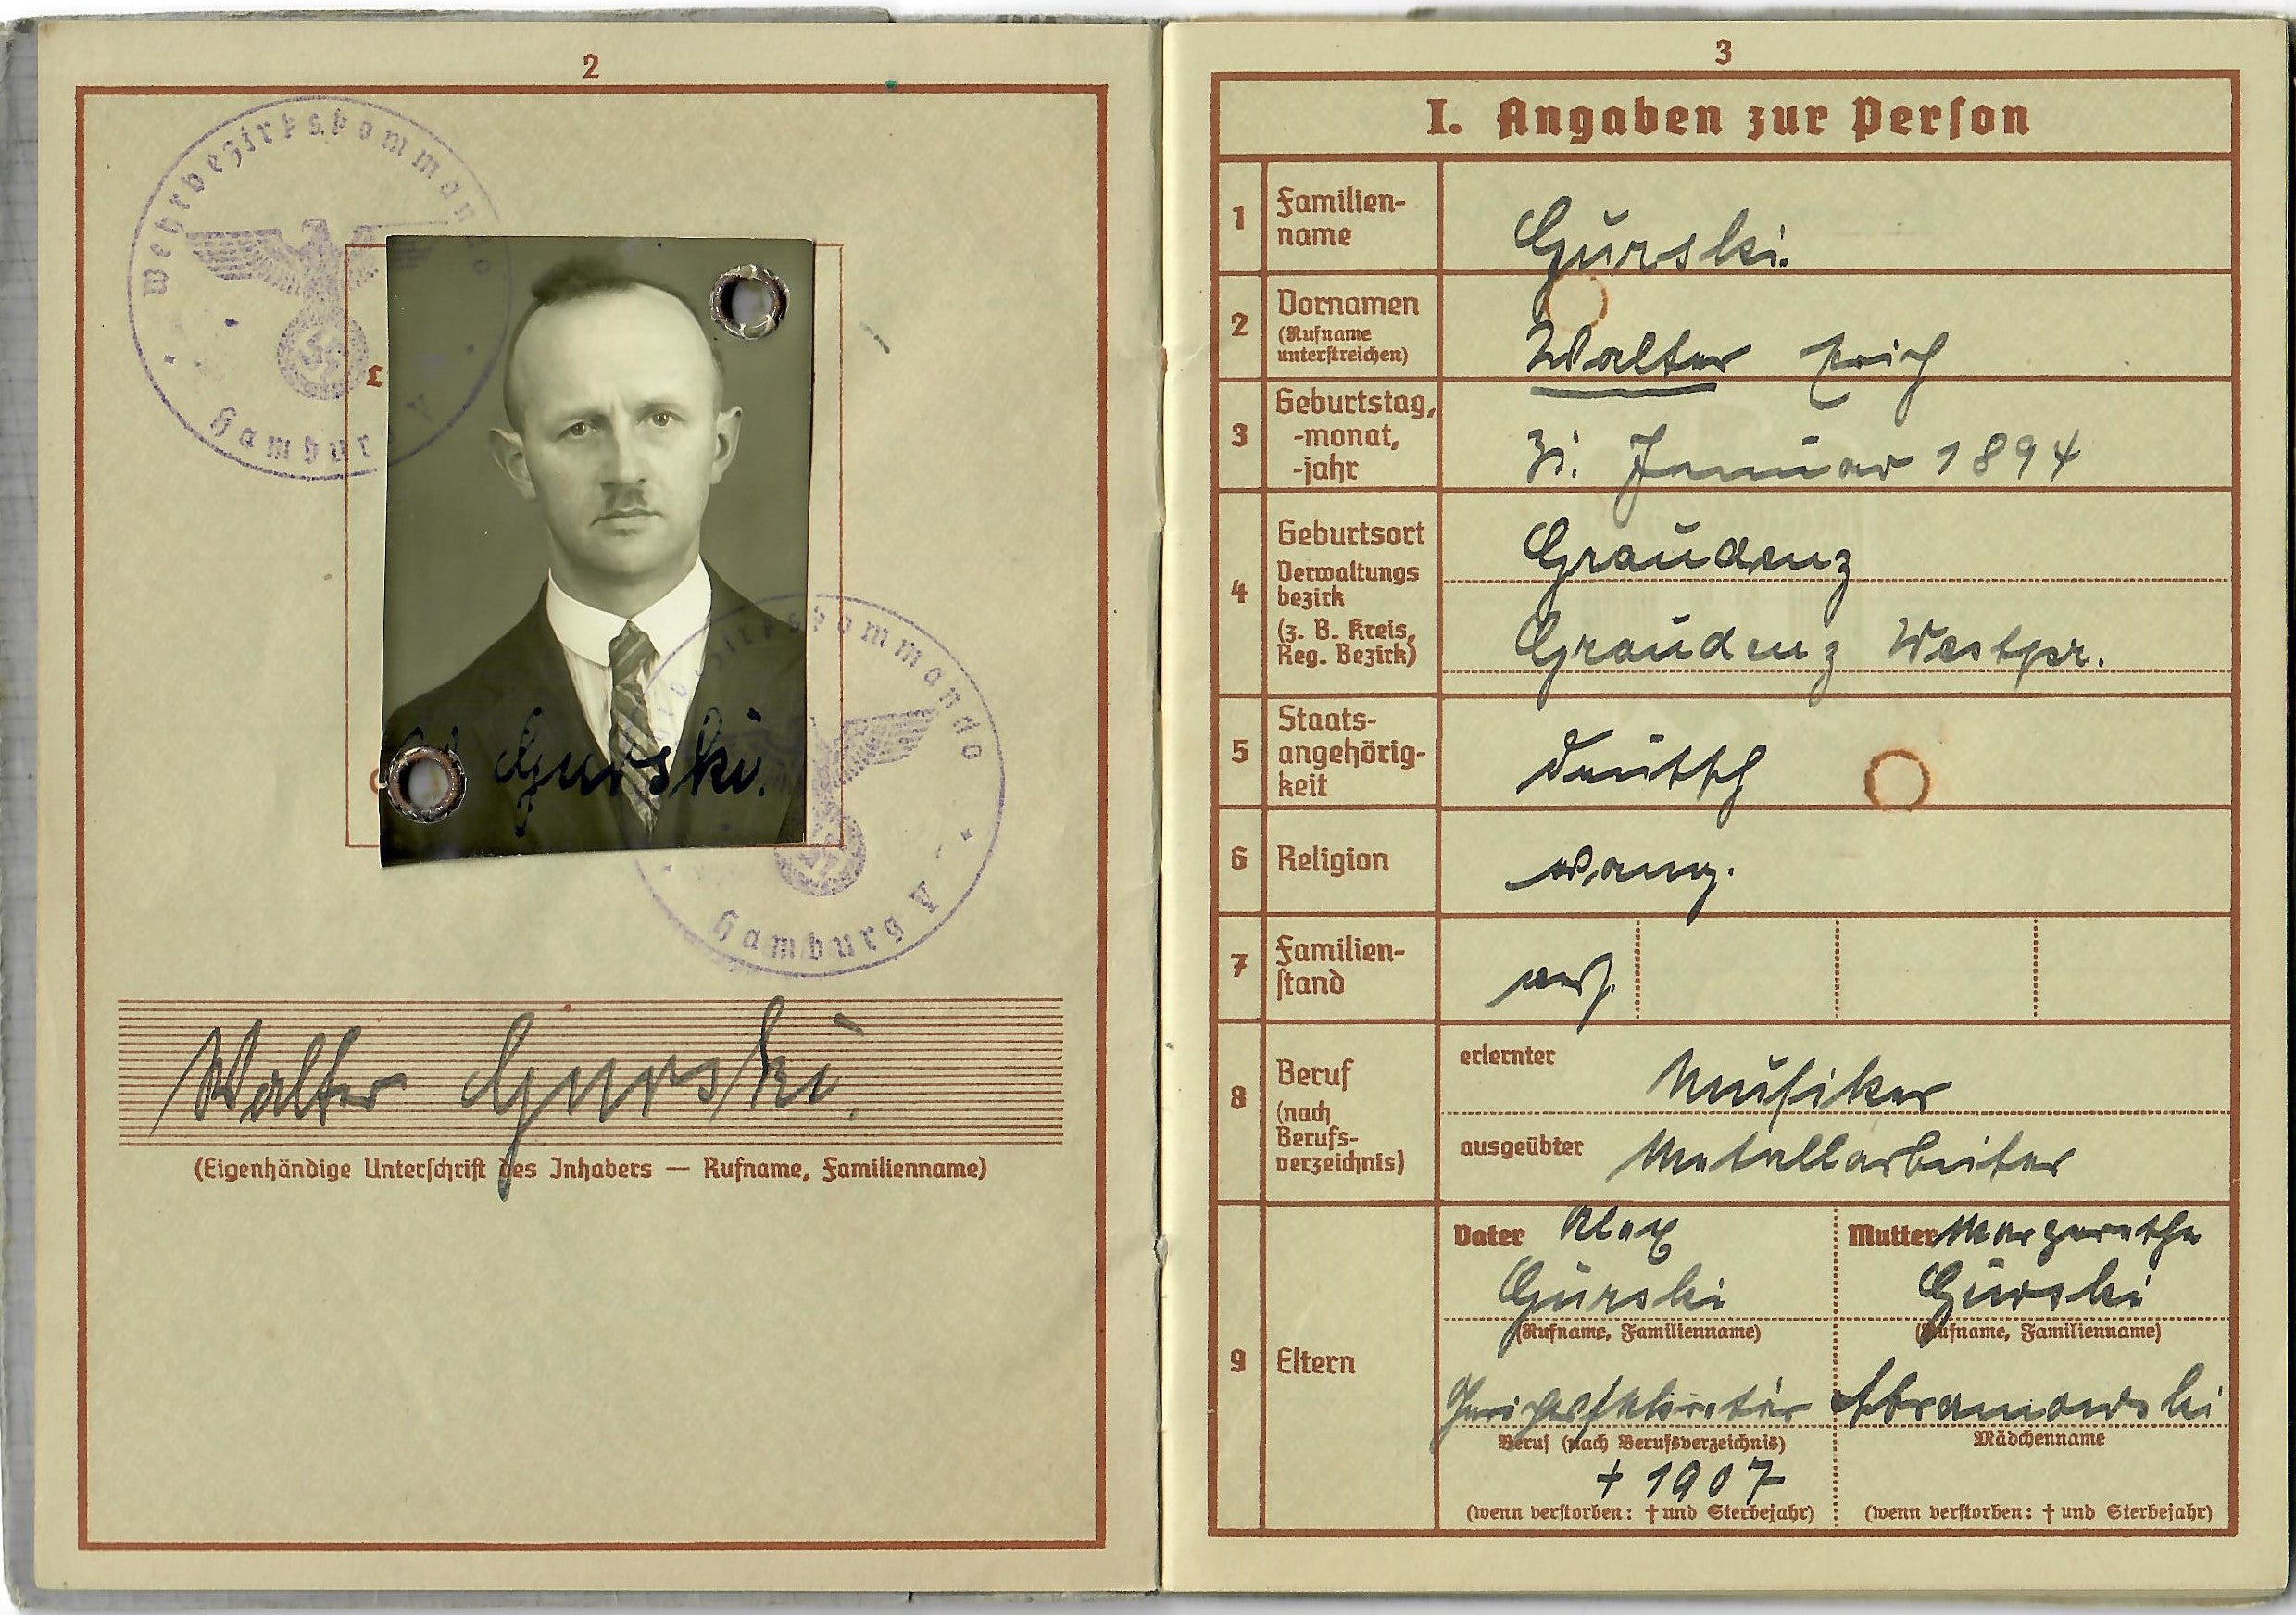 2
Wehrbezirkskommando
Hamburg V
W Gurski.
Wehrbezirkskommando
Hamburg V
Walter Gurski.
(Eigenhändige Unterschrift des Inhabers — Rufname, Familienname)
3
I. Angaben zur Person
1 Familien-
name
Gurski.
2 Vornamen
(Rufname
unterstreichen)
Walter Erich
3 Geburtstag,
-monat,
-jahr
31. Januar 1894
4 Geburtsort
Graudenz
Verwaltungs
bezirk
(z. B. Kreis,
Reg. Bezirk)
Graudenz Westpr.
5 Staats-
angehörig-
keit
Deutsch
6 Religion
evang.
7 Familien-
stand
verh.
8 Beruf
(nach
Berufs-
verzeichnis)
erlernter Musiker
ausgeübter Metallarbeiter
9 Eltern
Vater
Gurski
(Rufname, Familienname)
Gerichtssekretär
Beruf (nach Berufsverzeichnis)
+ 1907
(wenn verstorben: † und Sterbejahr)
Mutter Margarethe
Gurski
(Rufname, Familienname)
Abramowski
Mädchenname
(wenn verstorben: † und Sterbejahr)